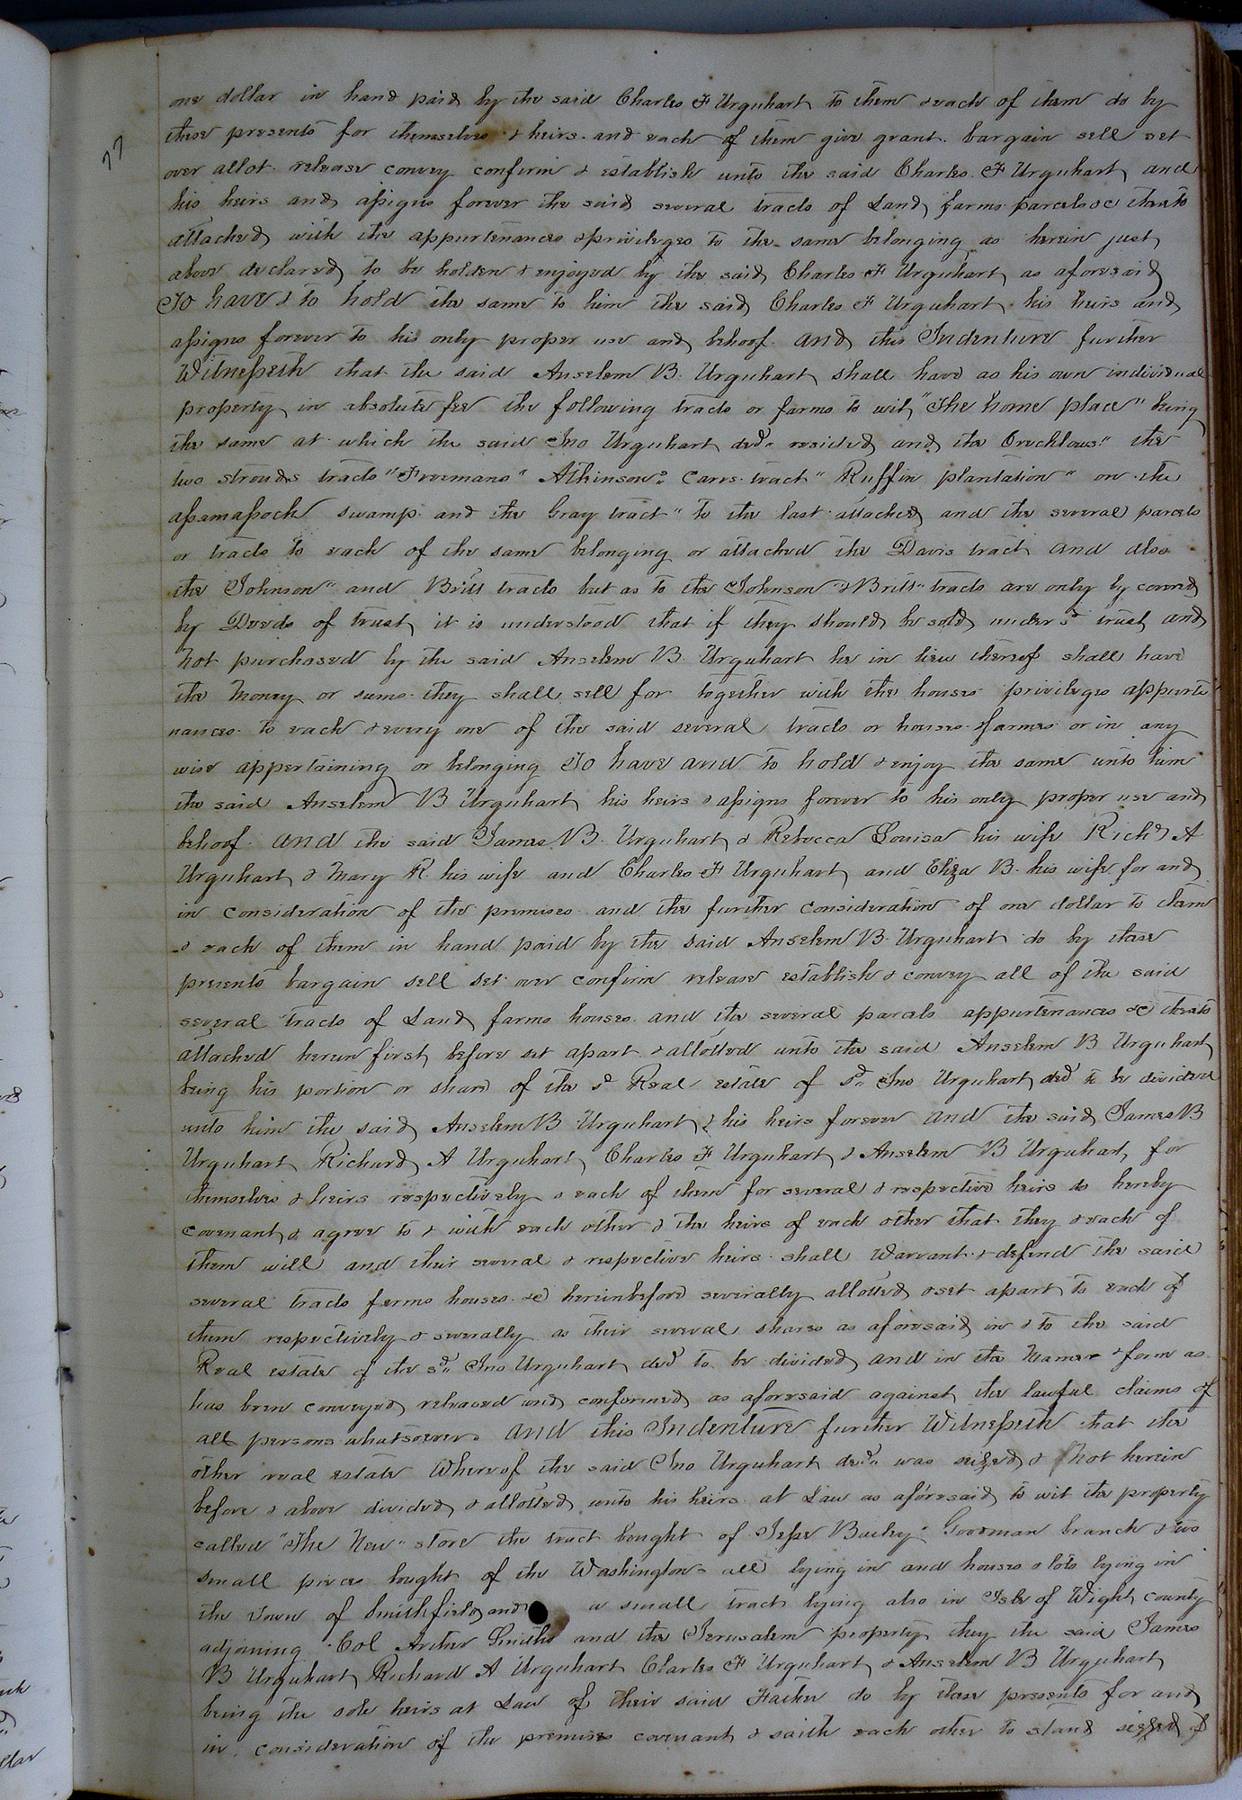 77
one dollar in hand paid by the said Charles F Urquhart to them & each of them do by
these presents for themselves & heirs and each of them give grant bargain sell set
over allot release convey confirm & establish unto the said Charles F Urquhart and
his heirs and assigns forever the said several tracts of Land farms parcels &c thereto
attached with the appurtenances & privileges to the same belonging as herein just
above declared to be holden & enjoyed by the said Charles F Urquhart as aforesaid
To have & to hold the same to him the said Charles F Urquhart his heirs and
assigns forever to his only proper use and behoof and this Indenture further
Witnesseth that the said Anselem B. Urquhart shall have as his own individual
property in absolute fee the following tracts or farms to wit, "The home place" being
the same at which the said Jno Urquhart decd. resided and the " the
two strouds tracts "Freemans" Atkinsons Carrs tract" Ruffin plantation" on the
assamassock swamp and the Gray tract" to the last attached and the several parcels
or tracts to each of the same belonging or attached the Davis tract and also
the Johnson" and Britt tracts but as to the Johnson & Britt" tracts are only by covered
by Deeds of trust, it is understood that if they should be sold under sd trust and
not purchased by the said Anselem B. Urquhart he in lieu thereof shall have
the money or sums they shall sell for together with the houses privileges appurte
nances to each & every one of the said several tracts or houses & farms or in any
wise appertaining or belonging To have and to hold & enjoy the same unto him
the said Anselem B Urquhart his heirs & assigns forever to his only proper use and
behoof. and the said James B. Urquhart & Rebecca Louisa his wife Richd A
Urquhart & Mary R. his wife and Charles F Urquhart and Eliza B. his wife for and
in consideration of the premises and the further consideration of one dollar to them
& each of them in hand paid by the said Anselem B. Urquhart do by these
presents bargain sell set over confirm release establish & convey all of the said
several tracts of Land farms houses and the several parcels appurtenances &c thereto
attached herein first before set apart & allotted unto the said Anselem B Urquhart
being his portion or share of the sd Real estate of sd. Jno Urquhart decd to be divided
unto him the said Anselem B Urquhart & his heirs forever and the said James B
Urquhart Richard A Urquhart, Charles F Urquhart & Anselem B Urquhart, for
themselves & heirs respectively & each of them for several & respective heirs do hereby
covenant & agree to & with each other & the heirs of each other that they & each of
them will and their several & respective heirs shall Warrant & defend the said
several tracts farms houses &c hereinbefore severally allotted & set apart to each of
them respectively & severally as their several shares as aforesaid in & to the said
Real estate of the sd. Jno Urquhart decd to be divided and in the Manner & form as
has been conveyed released and confirmed as aforesaid against the lawful claims of
all persons whatsoever. and this Indenture further Witnesseth that the
other real estate whereof the said Jno Urquhart decd. was seized & not herein
before & above divided & allotted unto his heirs at Law as aforesaid to wit the property
called "The New" store the tract bought of Jesse Bailey. Goodman branch & two
small pieces bought of the Washington all lying in and houses & lots lying in
the Town of Smithfield, and a small tract lying also in Isle of Wight county
adjoining Col Arther Smiths and the Jerusalem property they the said James
B Urquhart Richard A Urquhart Charles F Urquhart & Anselem B Urquhart,
being the sole heirs at Law of their said Father do by these presents for and
in consideration of the premises covenant & saith each other to stand seized of